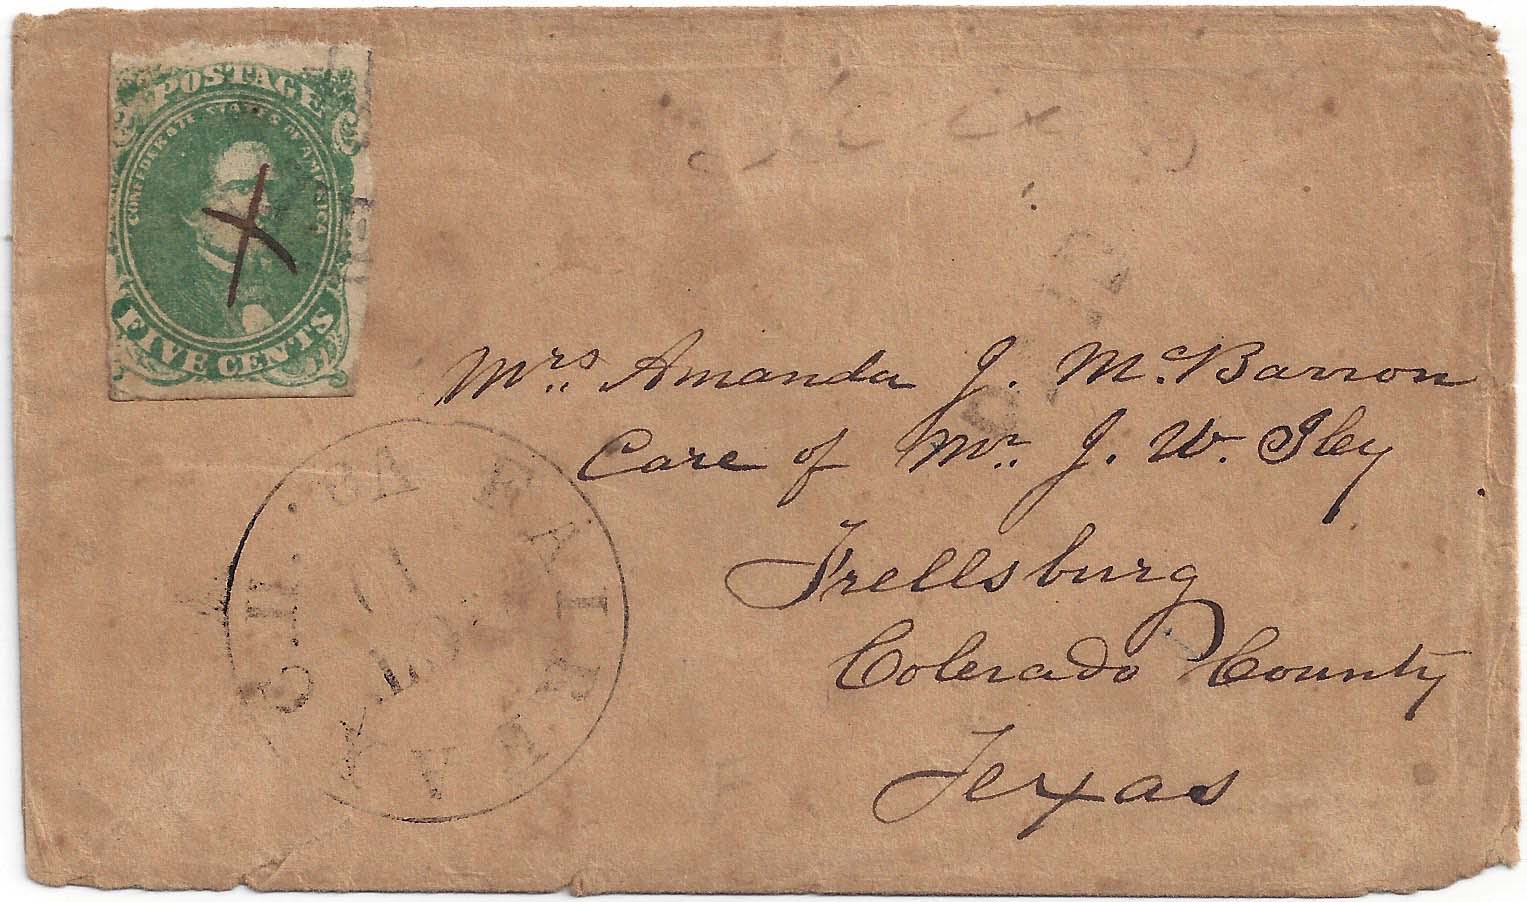 POSTAGE
CONFEDERATE STATES OF AMERICA
FIVE CENTS
PAID
Mrs. Amanda J. McBarron
Care of Mr. J. W. Iley
Frellsburg
Colerado County
Texas
FAIRFAX C.H. VA.
OCT